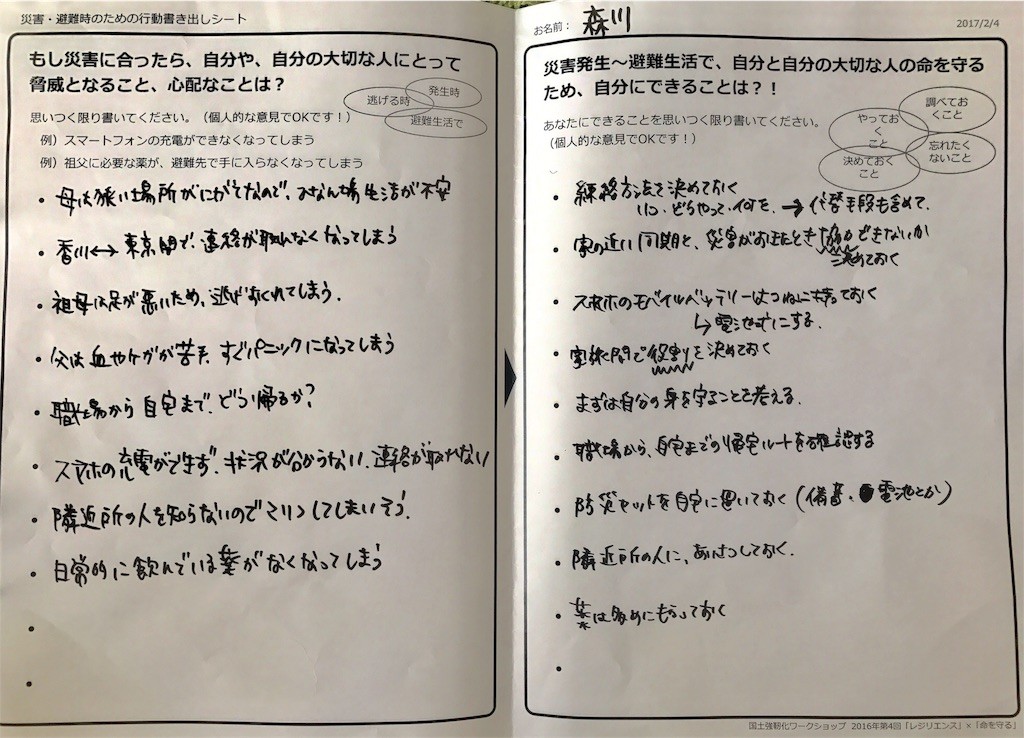 災害・避難時のための行動書き出しシート
もし災害に合ったら、自分や、自分の大切な人にとって
脅威となること、心配なことは？
発生時
逃げる時
避難生活で
思いつく限り書いてください。（個人的な意見でOKです！）
例）スマートフォンの充電ができなくなってしまう
例）祖父に必要な薬が、避難先で手に入らなくなってしまう
・母は狭い場所がにがてなので、ひなん場生活が不安
・香川↔東京間で、連絡が取れなくなってしまう
・祖母は足が悪いため、逃げおくれてしまう.
・父は血やケガが苦手、すぐパニックになってしまう
・職場から自宅まで、どう帰るか？
・スマホの充電ができず、状況が分からない、連絡が取れない
・隣近所の人を知らないのでコリツしてしまいそう.
・日常的に飲んでいる薬がなくなってしまう
・
・
お名前： 森川
2017/2/4
災害発生～避難生活で、自分と自分の大切な人の命を守る
ため、自分にできることは？！
あなたにできることを思いつく限り書いてください。
（個人的な意見でOKです！）
調べてお
くこと
やってお
く
こと
忘れたく
ないこと
決めておく
こと
・連絡方法を決めておく
いつ・どうやって・何を. → 代替手段も含めて.
・家の近い同期と、災害がおきたとき協力できないか
決めておく
・スマホのモバイルバッテリーはつねに持っておく
↳電池式にする.
・家族間で役割りを決めておく
・まずは自分の身を守ることを考える.
・職場から、自宅までの帰宅ルートを確認する
・防災セットを自宅に置いておく（備蓄・電池とか）
・隣近所の人に、あいさつしておく.
・薬は多めにもらっておく
・
国土強靭化ワークショップ 2016年第4回「レジリエンス」×「命を守る」